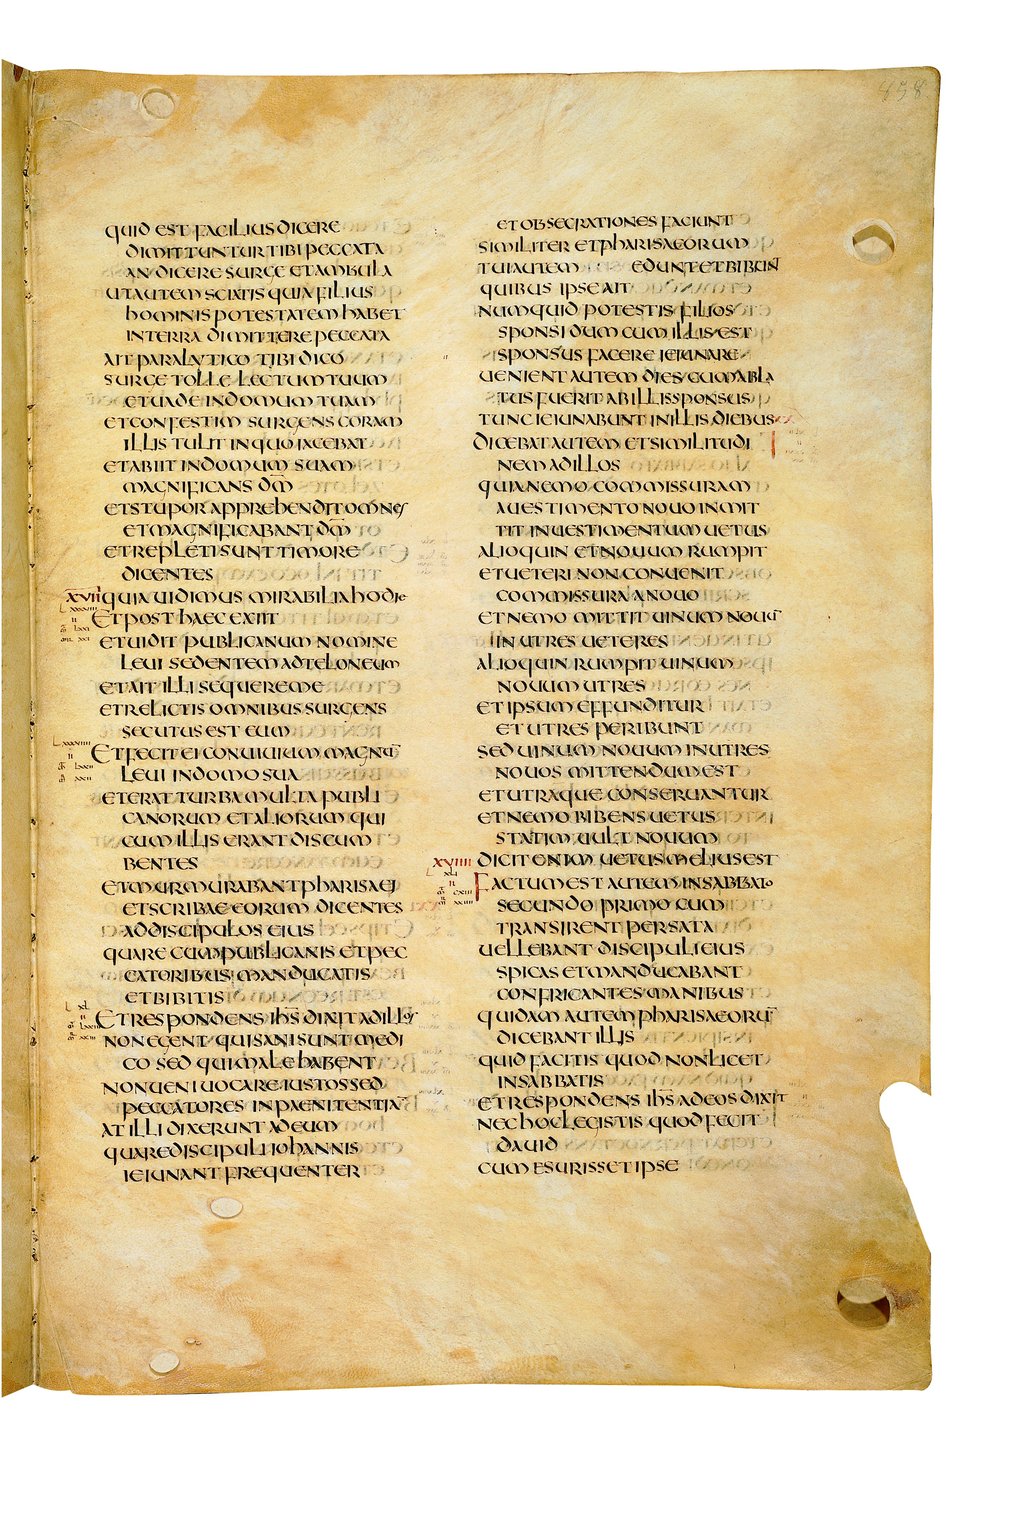 858
QUID EST FACILIUS DICERE
DIMITTUNTUR TIBI PECCATA
AN DICERE SURGE ET AMBULA
UT AUTEM SCIATIS QUIA FILIUS
HOMINIS POTESTATEM HABET
IN TERRA DIMITTERE PECCATA
AIT PARALYTICO TIBI DICO
SURGE TOLLE LECTUM TUUM
ET UADE IN DOMUM TUAM
ET CONFESTIM SURGENS CORAM
ILLIS TULIT IN QUO IACEBAT
ET ABIIT IN DOMUM SUAM
MAGNIFICANS DM̄
ET STUPOR APPREHENDIT OMNES
ET MAGNIFICABANT DM̄
ET REPLETI SUNT TIMORE
DICENTES
XVII QUIA UIDIMUS MIRABILIA HODIE
ET POST HAEC EXIIT
ET UIDIT PUBLICANUM NOMINE
LEUI SEDENTEM AD TELONEUM
ET AIT ILLI SEQUERE ME
ET RELICTIS OMNIBUS SURGENS
SECUTUS EST EUM
ET FECIT EI CONUIUIUM MAGNŪ
LEUI IN DOMO SUA
ET ERAT TURBA MULTA PUBLI
CANORUM ET ALIORUM QUI
CUM ILLIS ERANT DISCUM
BENTES
ET MURMURABANT PHARISAEI
ET SCRIBAE EORUM DICENTES
AD DISCIPULOS EIUS
QUARE CUM PUBLICANIS ET PEC
CATORIBUS MANDUCATIS
ET BIBITIS
ET RESPONDENS IHS̄ DIXIT AD ILLOS
NON EGENT QUI SANI SUNT MEDI
CO SED QUI MALE HABENT
NON UENI UOCARE IUSTOS SED
PECCATORES IN PAENITENTIĀ
AT ILLI DIXERUNT AD EUM
QUARE DISCIPULI IOHANNIS
IEIUNANT FREQUENTER
ET OBSECRATIONES FACIUNT
SIMILITER ET PHARISAEORUM
TUI AUTEM EDUNT ET BIBUNT
QUIBUS IPSE AIT
NUMQUID POTESTIS FILIOS
SPONSI DUM CUM ILLIS EST
SPONSUS FACERE IEIUNARE
UENIENT AUTEM DIES CUM ABLA
TUS FUERIT AB ILLIS SPONSUS
TUNC IEIUNABUNT IN ILLIS DIEBUS
DICEBAT AUTEM ET SIMILITUDI
NEM AD ILLOS
QUIA NEMO COMMISSURAM
A UESTIMENTO NOUO INMIT
TIT IN UESTIMENTUM UETUS
ALIOQUIN ET NOUUM RUMPIT
ET UETERI NON CONUENIT
COMMISSURA A NOUO
ET NEMO MITTIT UINUM NOUŪ
IN UTRES UETERES
ALIOQUIN RUMPIT UINUM
NOUUM UTRES
ET IPSUM EFFUNDITUR
ET UTRES PERIBUNT
SED UINUM NOUUM IN UTRES
NOUOS MITTENDUM EST
ET UTRAQUE CONSERUANTUR
ET NEMO BIBENS UETUS
STATIM UULT NOUUM
XVIIII DICIT ENIM UETUS MELIUS EST
FACTUM EST AUTEM IN SABBATO
SECUNDO PRIMO CUM
TRANSIRENT PER SATA
UELLEBANT DISCIPULI EIUS
SPICAS ET MANDUCABANT
CONFRICANTES MANIBUS
QUIDAM AUTEM PHARISAEORŪ
DICEBANT ILLIS
QUID FACITIS QUOD NON LICET
IN SABBATIS
ET RESPONDENS IHS̄ AD EOS DIXIT
NEC HOC LEGISTIS QUOD FECIT
DAUID
CUM ESURISSET IPSE